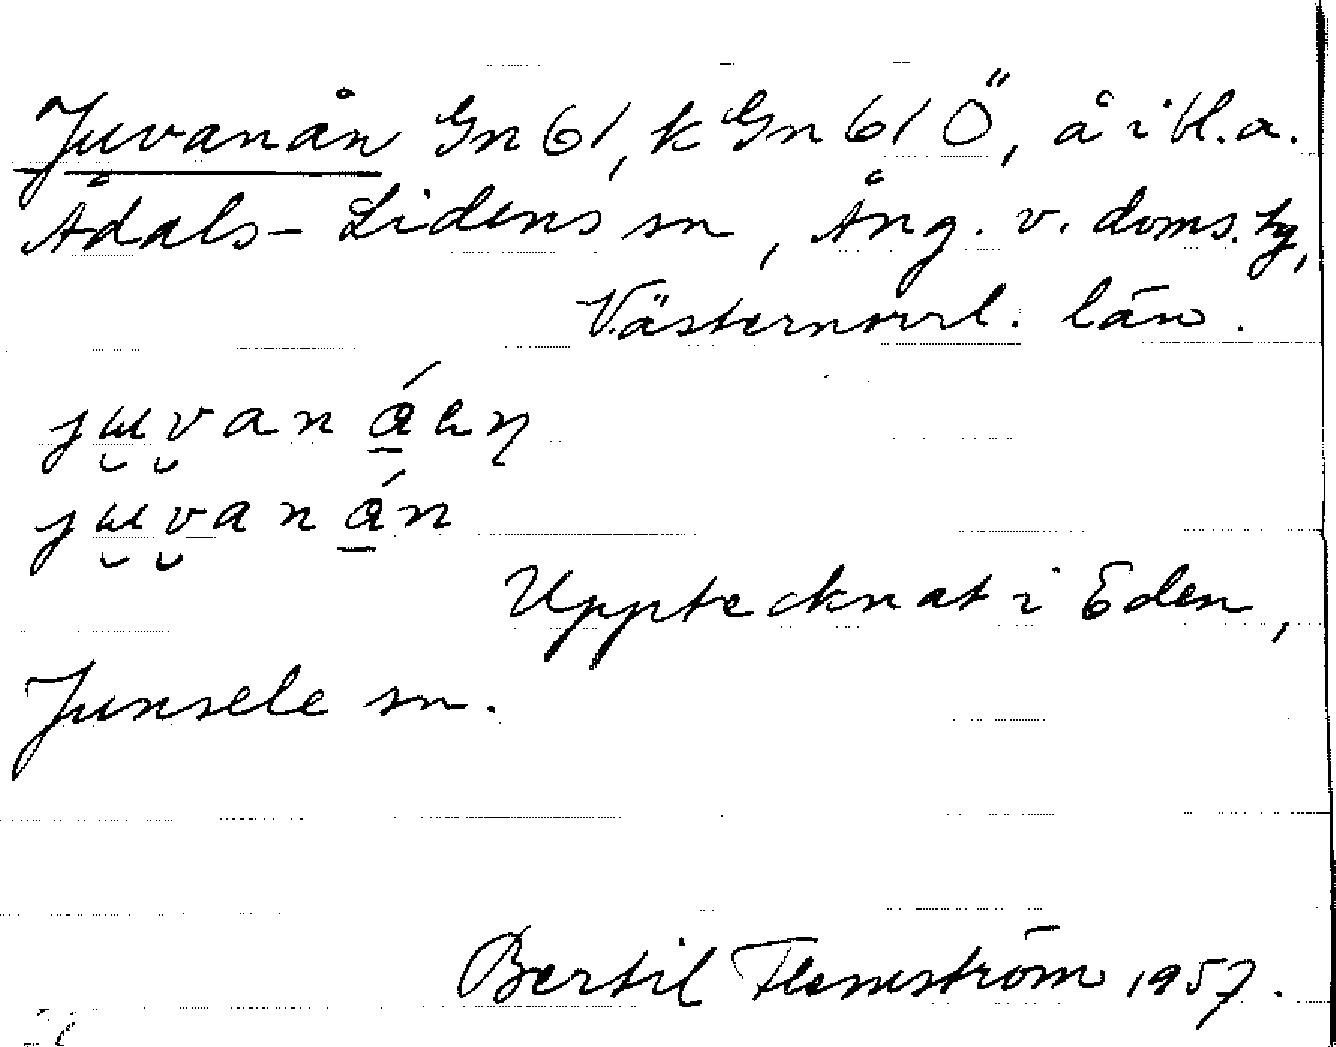 Juvanån Gn 61, k Gn 61 Ö, å i bl.a.
Ådals-Lidens sn, Ång. v. doms.hg,
Västernorrl. län.
Upptecknat i Eden,
Junsele sn.
Bertil Flemström 1957.